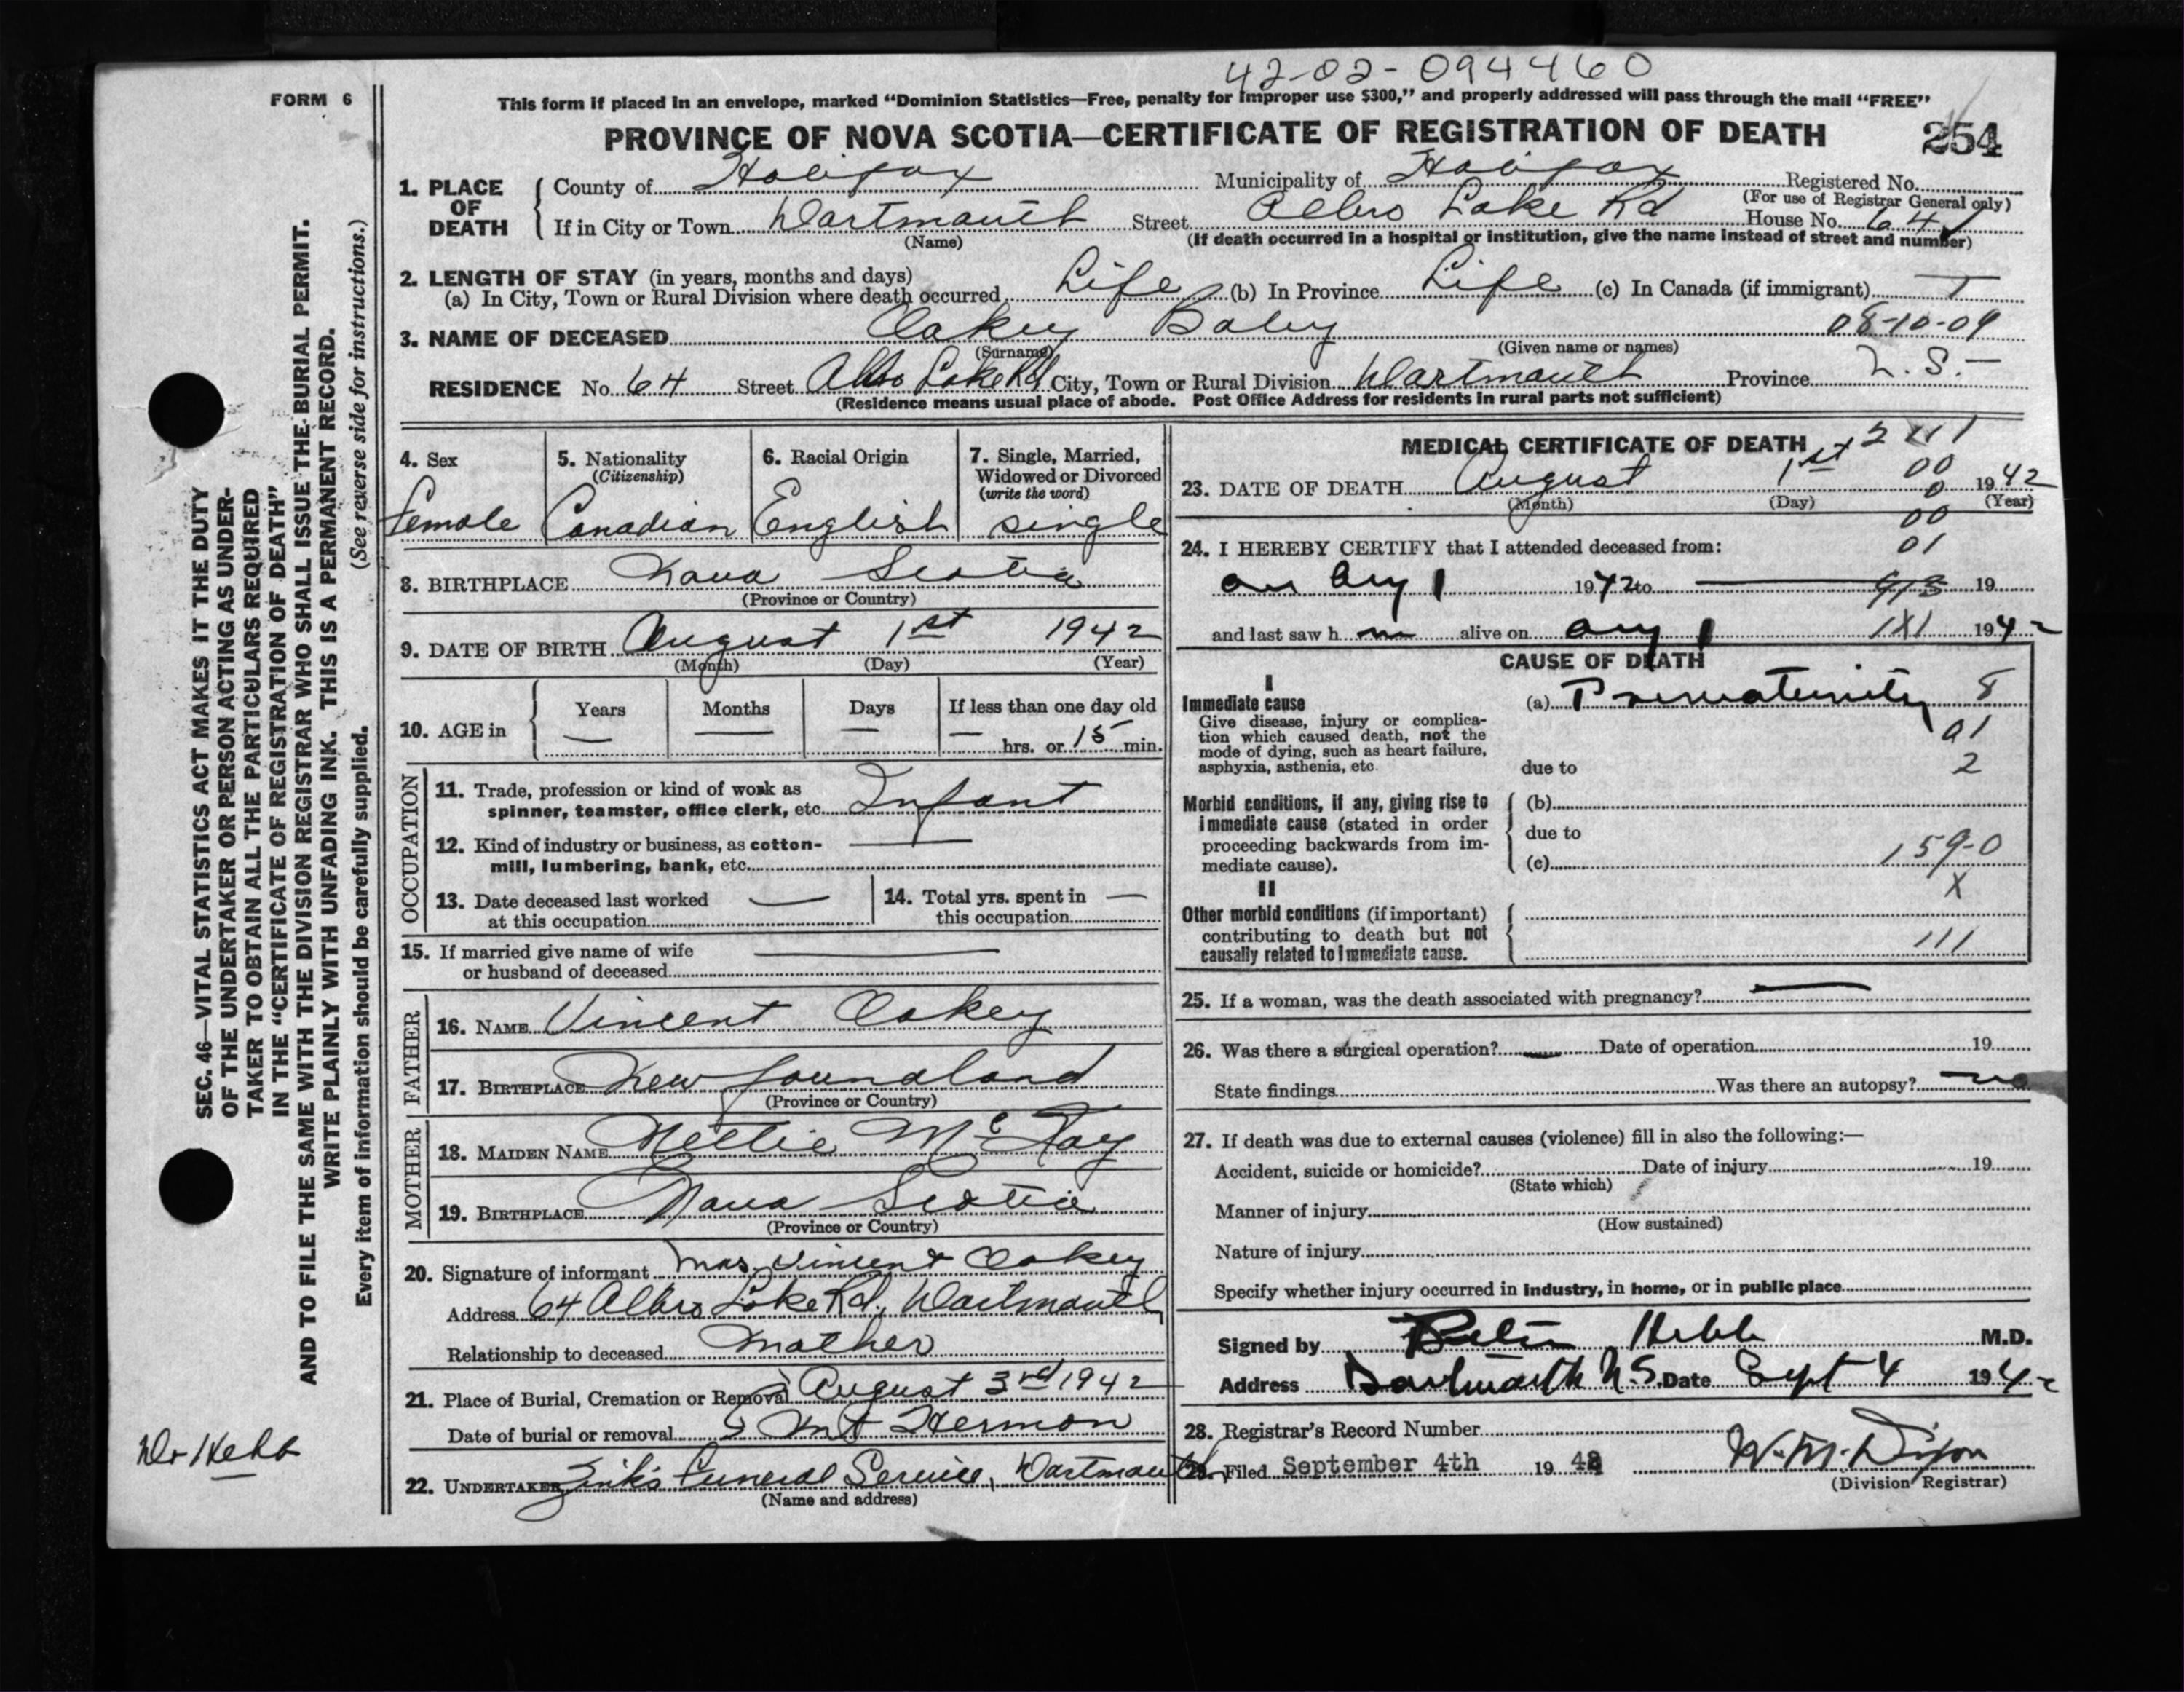 42-02-094460
FORM 6
This form if placed in an envelope, marked “Dominion Statistics—Free, penalty for improper use $300,” and properly addressed will pass through the mail “FREE”
PROVINCE OF NOVA SCOTIA—CERTIFICATE OF REGISTRATION OF DEATH 254
1. PLACE OF DEATH County of Halifax Municipality of Halifax Registered No.
(For use of Registrar General only)
If in City or Town Dartmouth Street Albro Lake Rd House No. 64
(Name) (If death occurred in a hospital or institution, give the name instead of street and number)
2. LENGTH OF STAY (in years, months and days)
(a) In City, Town or Rural Division where death occurred Life (b) In Province Life (c) In Canada (if immigrant) —
3. NAME OF DECEASED Oakey Baby 08-10-09
(Surname) (Given name or names)
RESIDENCE No. 64 Street Albro Lake Rd City, Town or Rural Division Dartmouth Province N.S.—
(Residence means usual place of abode. Post Office Address for residents in rural parts not sufficient)
4. Sex 5. Nationality (Citizenship) 6. Racial Origin 7. Single, Married, Widowed or Divorced (write the word)
Female Canadian English single
8. BIRTHPLACE Nova Scotia
(Province or Country)
9. DATE OF BIRTH August 1st 1942
(Month) (Day) (Year)
10. AGE in Years Months Days If less than one day old
— — — — hrs. or 15 min.
OCCUPATION
11. Trade, profession or kind of work as
spinner, teamster, office clerk, etc. Infant
12. Kind of industry or business, as cotton-
mill, lumbering, bank, etc. —
13. Date deceased last worked —
at this occupation
14. Total yrs. spent in —
this occupation
15. If married give name of wife —
or husband of deceased
FATHER
16. NAME Vincent Oakey
17. BIRTHPLACE Newfoundland
(Province or Country)
MOTHER
18. MAIDEN NAME Nettie McKay
19. BIRTHPLACE Nova Scotia
(Province or Country)
20. Signature of informant Mrs. Vincent Oakey
Address 64 Albro Lake Rd., Dartmouth
Relationship to deceased Mother
21. Place of Burial, Cremation or Removal August 3rd 1942
Date of burial or removal Mt Hermon
22. UNDERTAKER Zink's Funeral Service, Dartmouth
(Name and address)
MEDICAL CERTIFICATE OF DEATH
23. DATE OF DEATH August 1st 1942
(Month) (Day) (Year)
00
0
00
24. I HEREBY CERTIFY that I attended deceased from: 01
on Aug 1 1942 to — 19
and last saw h alive on Aug 1 1942
CAUSE OF DEATH
I
Immediate cause (a) Prematurity 8
Give disease, injury or complica-
tion which caused death, not the
mode of dying, such as heart failure,
asphyxia, asthenia, etc. due to 2
Morbid conditions, if any, giving rise to (b)
immediate cause (stated in order due to
proceeding backwards from im-
mediate cause). (c) 159-0
II X
Other morbid conditions (if important)
contributing to death but not
causally related to immediate cause. 111
25. If a woman, was the death associated with pregnancy? —
26. Was there a surgical operation? — Date of operation 19
State findings Was there an autopsy? no
27. If death was due to external causes (violence) fill in also the following:—
Accident, suicide or homicide? Date of injury 19
(State which)
Manner of injury
(How sustained)
Nature of injury
Specify whether injury occurred in industry, in home, or in public place
Signed by Hebb M.D.
Address Dartmouth N.S. Date Sept 4 1942
28. Registrar's Record Number
29. Filed September 4th 1942 W. M. Dixon
(Division Registrar)
SEC. 46—VITAL STATISTICS ACT MAKES IT THE DUTY
OF THE UNDERTAKER OR PERSON ACTING AS UNDER-
TAKER TO OBTAIN ALL THE PARTICULARS REQUIRED
IN THE “CERTIFICATE OF REGISTRATION OF DEATH”
AND TO FILE THE SAME WITH THE DIVISION REGISTRAR WHO SHALL ISSUE THE BURIAL PERMIT.
WRITE PLAINLY WITH UNFADING INK. THIS IS A PERMANENT RECORD.
Every item of information should be carefully supplied. (See reverse side for instructions.)
Dr Hebb